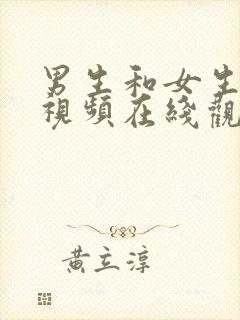 男生和女生
視頻在綫觀
黃立淳